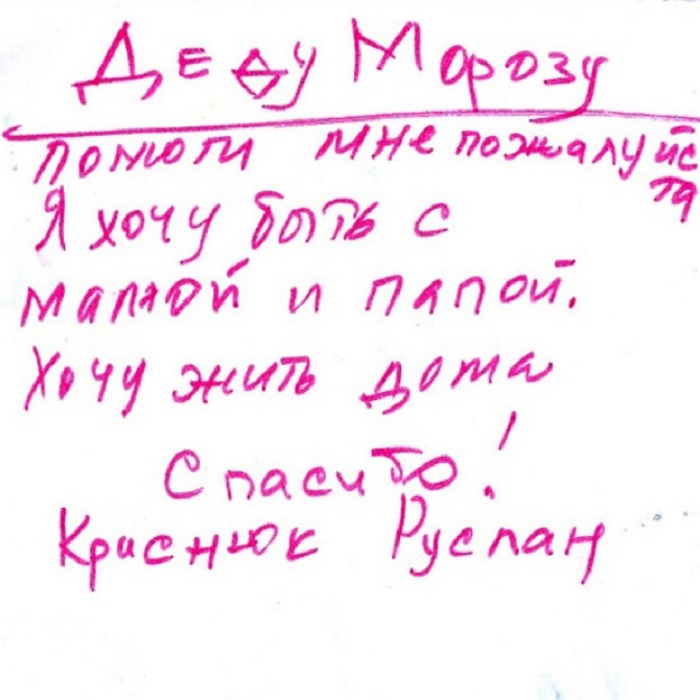 Деду Морозу
помоги мне пожалуйс
та
Я хочу быть с
мамой и папой.
Хочу жить дома
Спасибо!
Криснюк Руслан